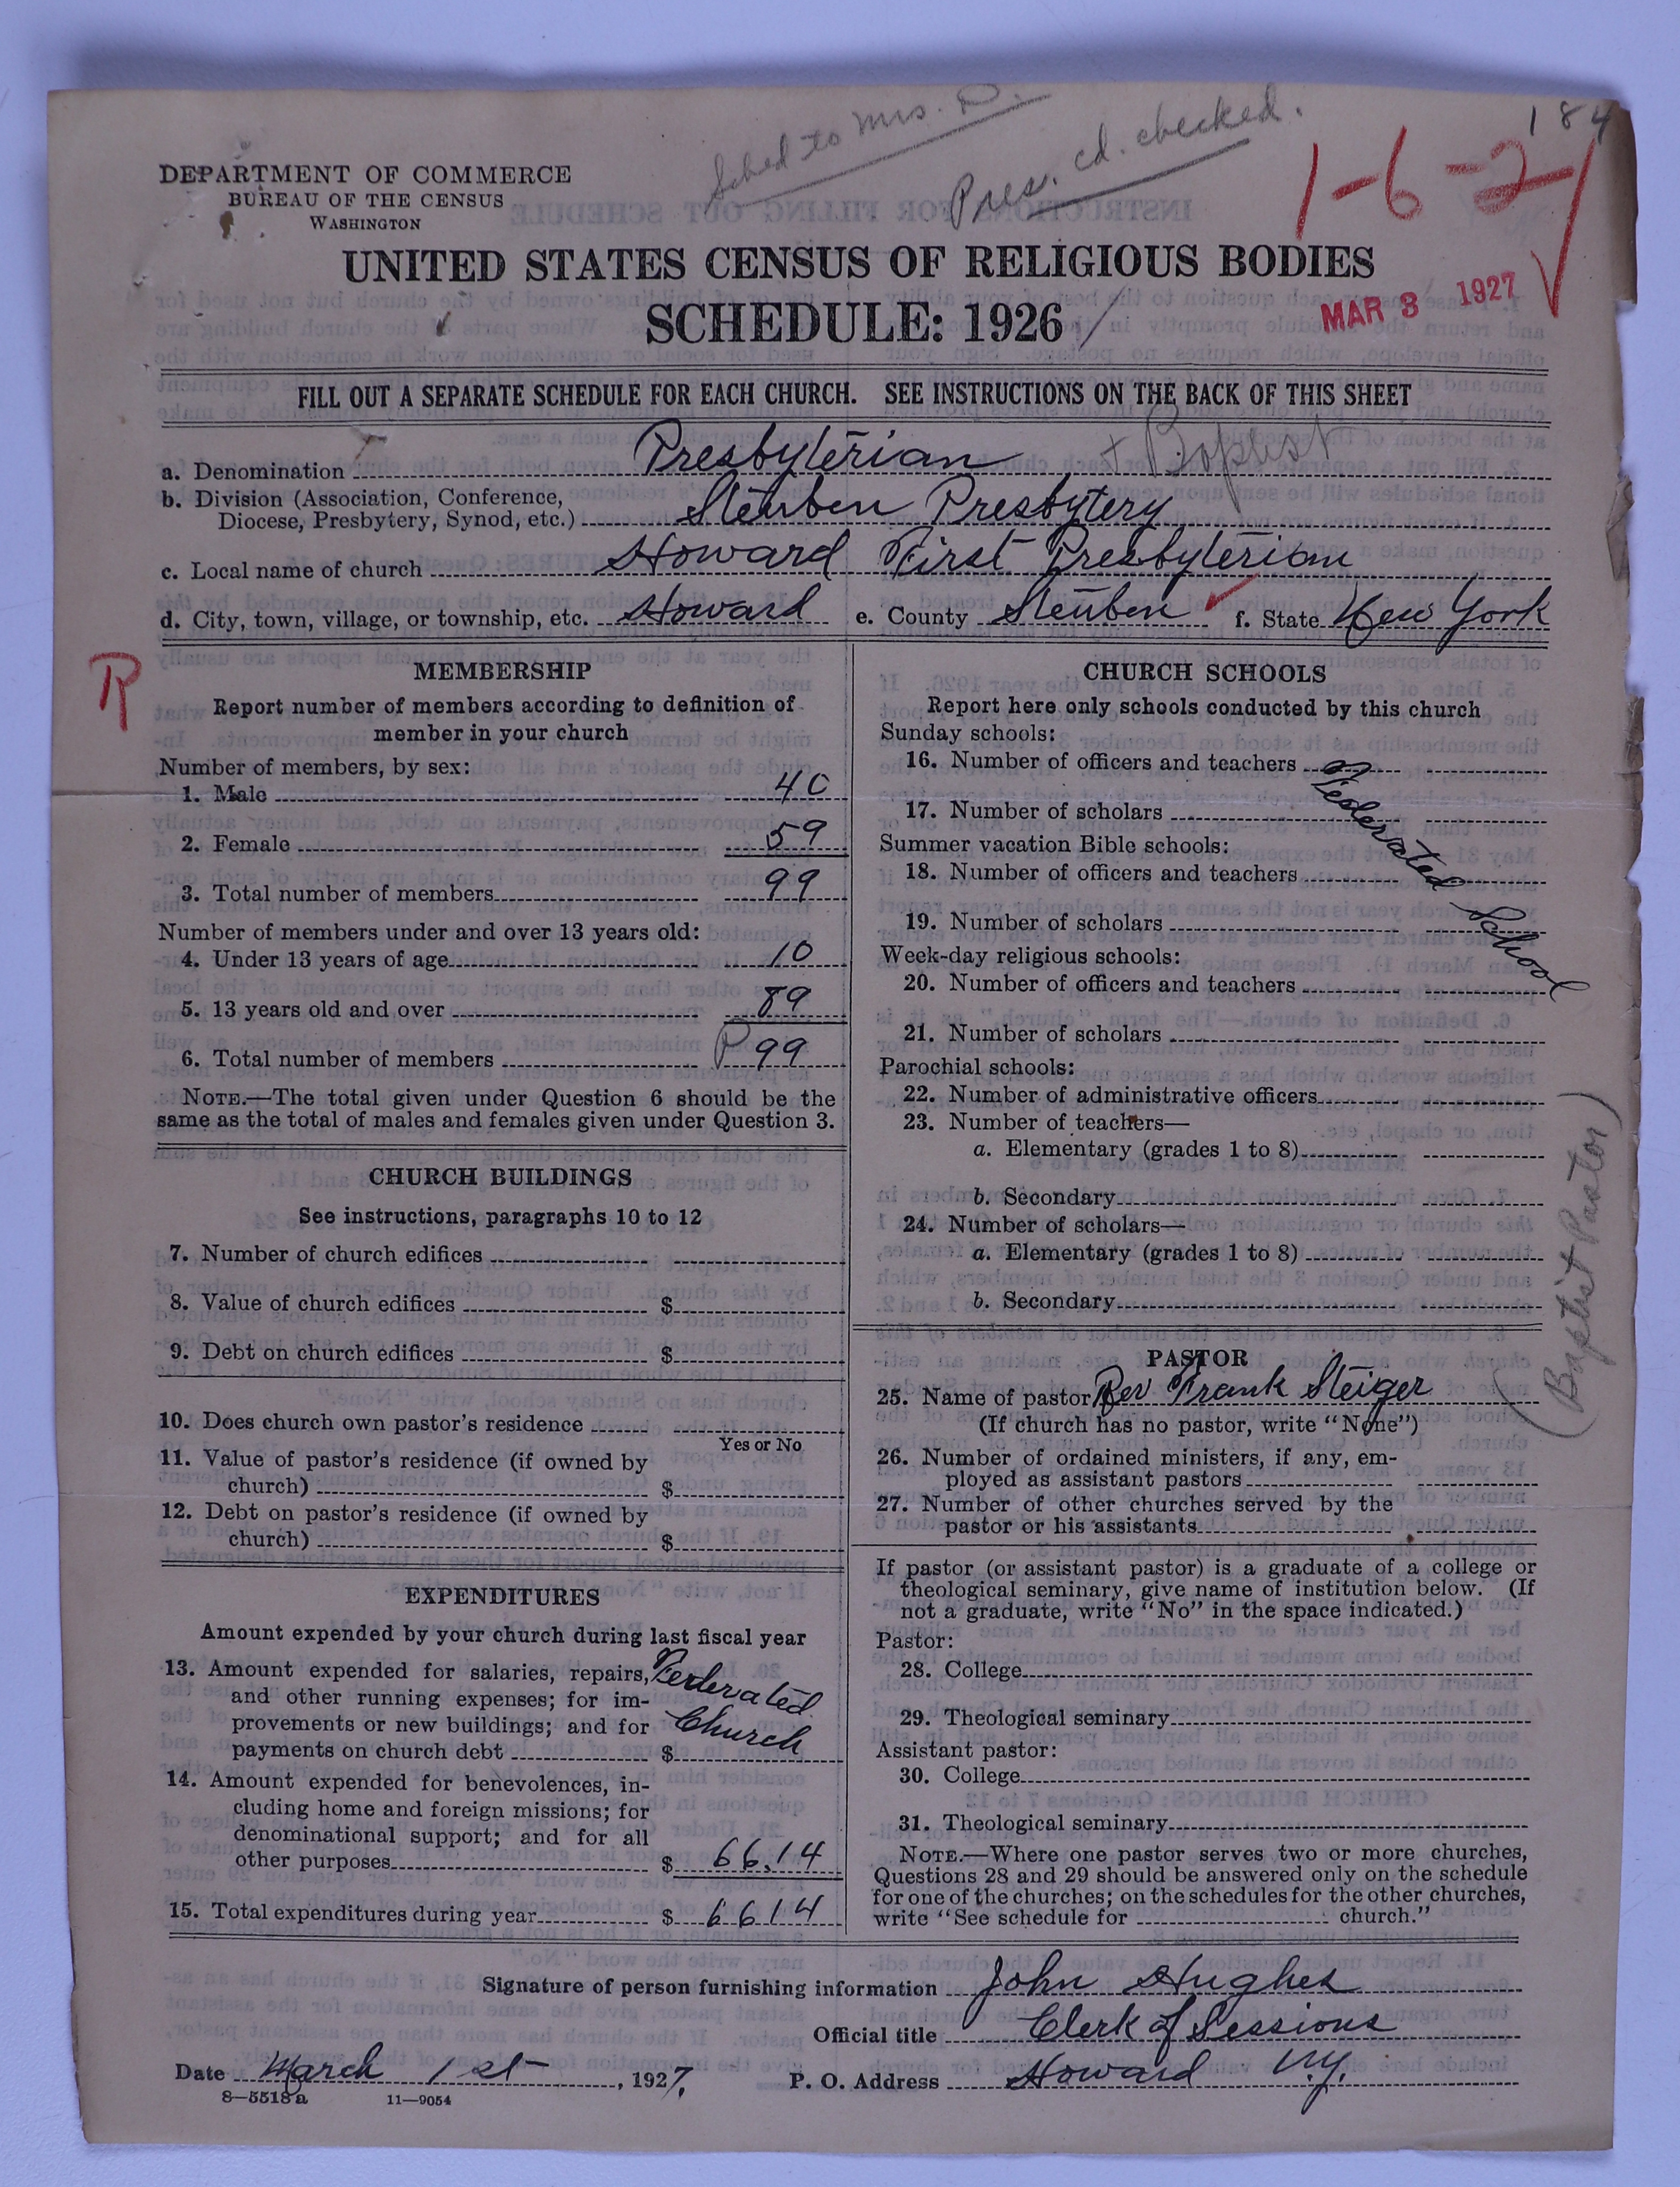 184
Sched to Mrs.
Pres. cd. checked.
1-6-2
DEPARTMENT OF COMMERCE
BUREAU OF THE CENSUS
WASHINGTON
UNITED STATES CENSUS OF RELIGIOUS BODIES
SCHEDULE: 1926
MAR 3 1927
FILL OUT A SEPARATE SCHEDULE FOR EACH CHURCH. SEE INSTRUCTIONS ON THE BACK OF THIS SHEET
a. Denomination Presbyterian + Baptist
b. Division (Association, Conference,
Diocese, Presbytery, Synod, etc.) Steuben Presbytery
c. Local name of church Howard First Presbyterian
d. City, town, village, or township, etc. Howard e. County Steuben f. State New York
R
MEMBERSHIP
Report number of members according to definition of
member in your church
Number of members, by sex:
1. Male 40
2. Female 59
3. Total number of members 99
Number of members under and over 13 years old:
4. Under 13 years of age 10
5. 13 years old and over 89
6. Total number of members P 99
NOTE.—The total given under Question 6 should be the
same as the total of males and females given under Question 3.
CHURCH BUILDINGS
See instructions, paragraphs 10 to 12
7. Number of church edifices
8. Value of church edifices $
9. Debt on church edifices $
10. Does church own pastor's residence
Yes or No
11. Value of pastor's residence (if owned by
church) $
12. Debt on pastor's residence (if owned by
church) $
EXPENDITURES
Amount expended by your church during last fiscal year
13. Amount expended for salaries, repairs,
and other running expenses; for im-
provements or new buildings; and for
payments on church debt $
Federated
Church
14. Amount expended for benevolences, in-
cluding home and foreign missions; for
denominational support; and for all
other purposes $ 66.14
15. Total expenditures during year $ 66 14
CHURCH SCHOOLS
Report here only schools conducted by this church
Sunday schools:
16. Number of officers and teachers
17. Number of scholars
Summer vacation Bible schools:
18. Number of officers and teachers
19. Number of scholars
Week-day religious schools:
20. Number of officers and teachers
21. Number of scholars
Federated School
Parochial schools:
22. Number of administrative officers
23. Number of teachers—
a. Elementary (grades 1 to 8)
b. Secondary
24. Number of scholars—
a. Elementary (grades 1 to 8)
b. Secondary
PASTOR
25. Name of pastor Rev Frank Steiger
(Baptist Pastor)
(If church has no pastor, write "None")
26. Number of ordained ministers, if any, em-
ployed as assistant pastors
27. Number of other churches served by the
pastor or his assistants
If pastor (or assistant pastor) is a graduate of a college or
theological seminary, give name of institution below. (If
not a graduate, write "No" in the space indicated.)
Pastor:
28. College
29. Theological seminary
Assistant pastor:
30. College
31. Theological seminary
NOTE.—Where one pastor serves two or more churches,
Questions 28 and 29 should be answered only on the schedule
for one of the churches; on the schedules for the other churches,
write "See schedule for church."
Signature of person furnishing information John Hughes
Official title Clerk of Sessions
Date March 1st, 1927. P. O. Address Howard N.Y.
8—5518 a 11—9054